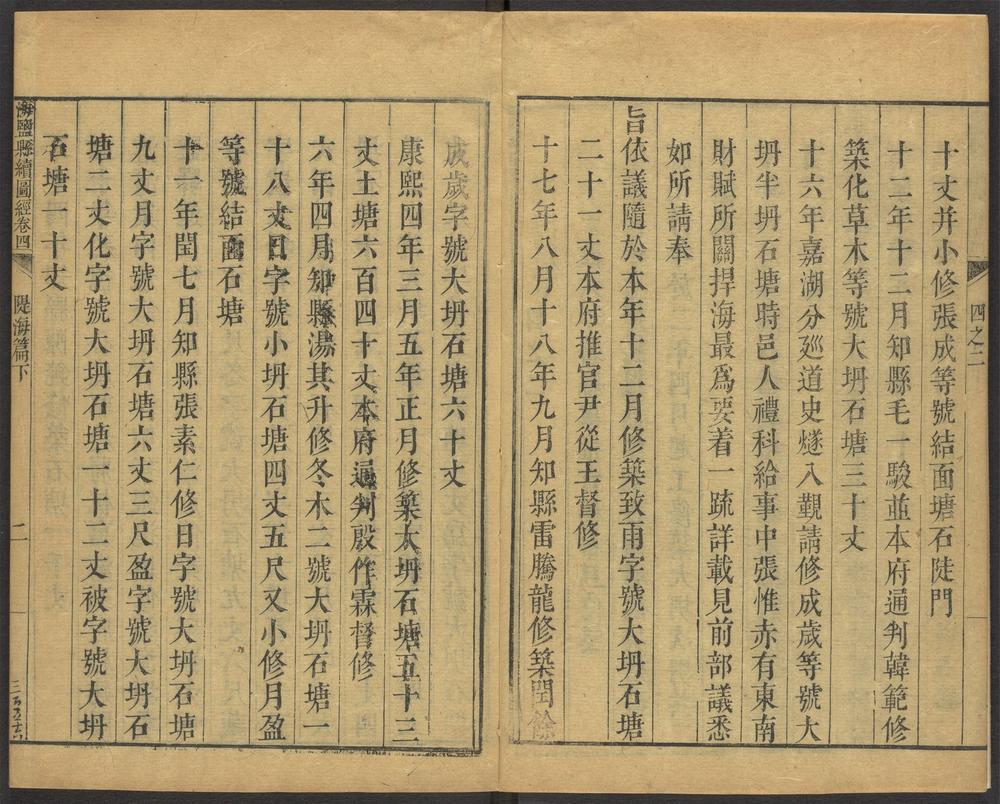 四之二
十丈并小修張成等號結面塘石陡門
十二年十二月知縣毛一駿並本府通判韓範修
築化草木等號大坍石塘三十丈
十六年嘉湖分廵道史燧入覲請修成歲等號大
坍半坍石塘時邑人禮科給事中張惟赤有東南
財賦所關捍海最爲要着一疏詳載見前部議悉
如所請奉
旨依議隨於本年十二月修築致雨字號大坍石塘
二十一丈本府推官尹從王督修
十七年八月十八年九月知縣雷騰龍修築閏餘
成歲字號大坍石塘六十丈
康熙四年三月五年正月修築大坍石塘五十三
丈土塘六百四十丈本府通判殷作霖督修
六年四月知縣湯其升修冬木二號大坍石塘一
十八丈日字號小坍石塘四丈五尺又小修月盈
等號結面石塘
十一年閏七月知縣張素仁修日字號大坍石塘
九丈月字號大坍石塘六丈三尺盈字號大坍石
塘二丈化字號大坍石塘一十二丈被字號大坍
石塘一十丈
海鹽縣續圖經卷四
隄海篇下
二